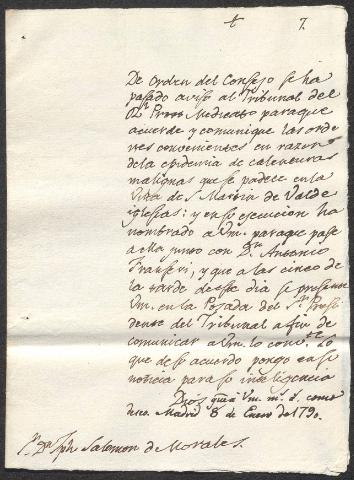 t 7
De orden del Consejo se ha
pasado aviso al Tribunal del
Rl. Proto Medicato para que
acuerde y comunique las orde
nes convenientes en razon
de la epidemia de calenturas
malignas que se padece en la
Villa de Sn. Martin de Valde
iglesias: y en su ejecucion ha
nombrado a Vm. para que pase
a ella junto con Dn. Antonio
Franseri, y que a las cinco de
la tarde de este dia se presente
Vm. en la Posada del Sr. Presi
dente del Tribunal a fin de
comunicar a Vm. lo convte. Lo
que de su acuerdo pongo en su
noticia para su inteligencia
Dios gue. a Vm. ms. as. como
deseo. Madrid 8 de Enero de 1790.
Sr. Dn. Jph Salomon de Morales.